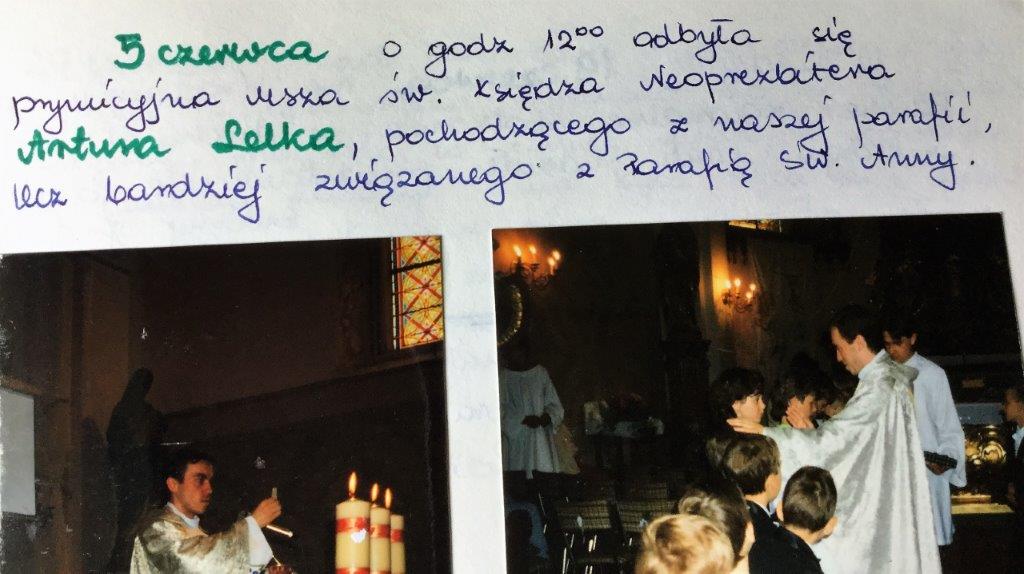 5 czerwca o godz 12⁰⁰ odbyła się
prymicyjna Msza św. Księdza Neoprezbitera
Artura Lelka, pochodzącego z naszej parafii,
lecz bardziej związanego z Parafią Św. Anny.